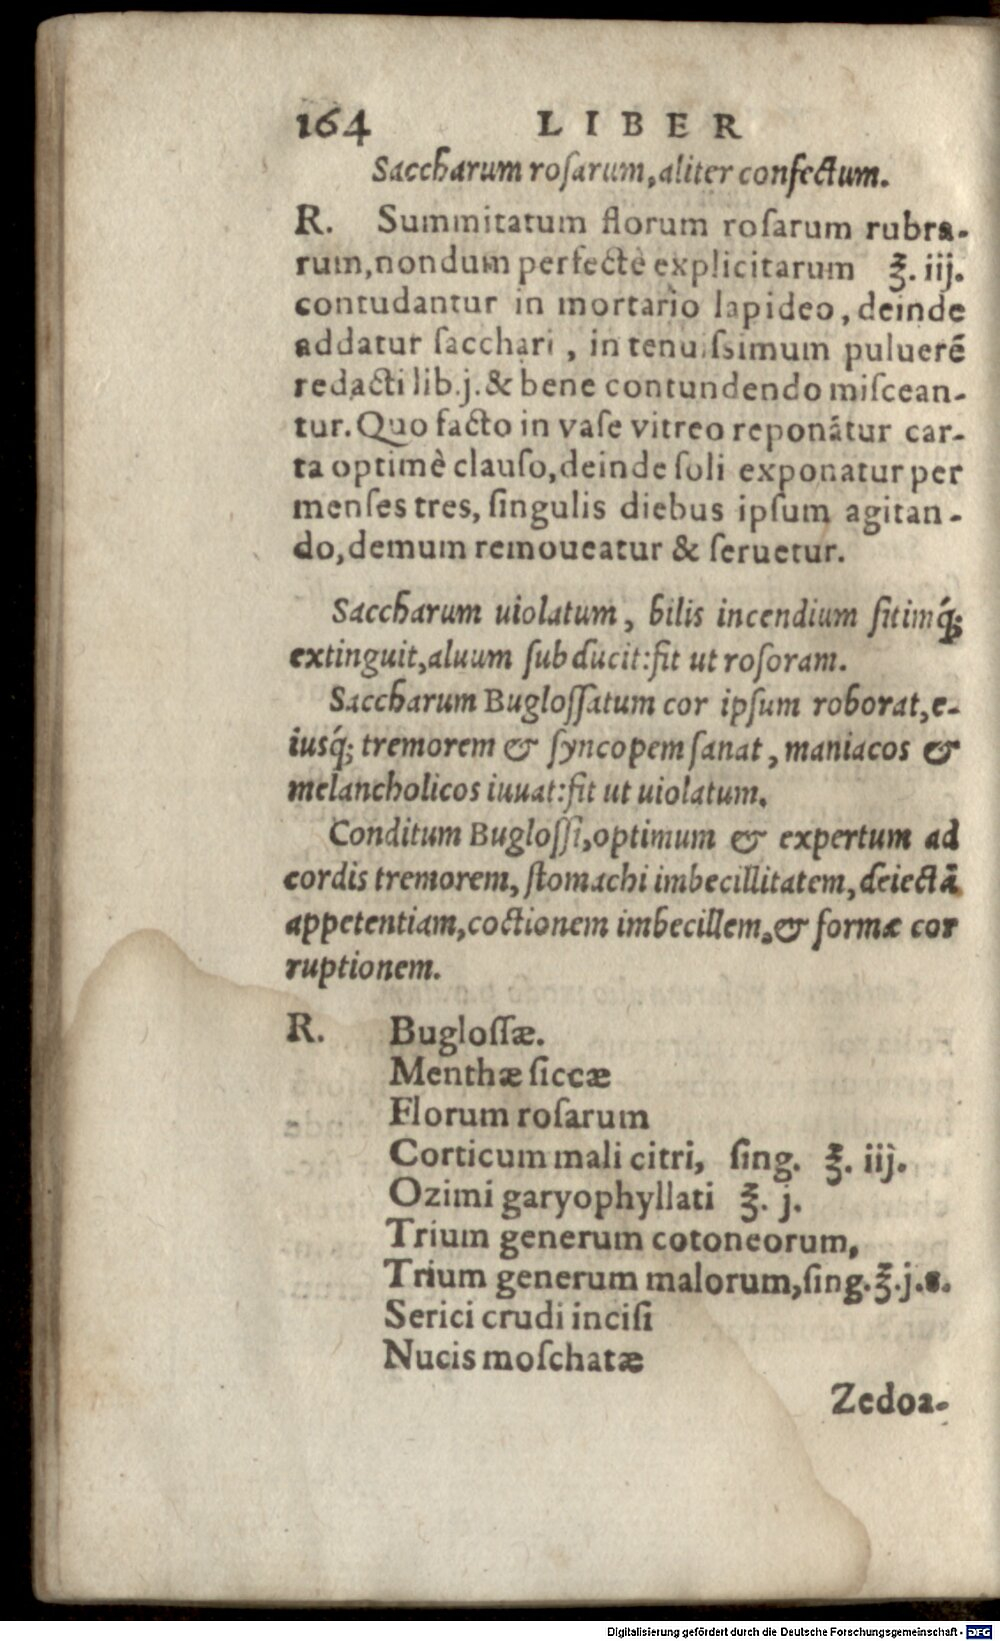 164 LIBER
Saccharum roſarum, aliter confectum.
R. Summitatum florum roſarum rubra-
rum, nondum perfectè explicitarum ℥. iij.
contudantur in mortario lapideo, deinde
addatur ſacchari, in tenuiſsimum puluerē
redacti lib. j. & bene contundendo miſcean-
tur. Quo facto in vaſe vitreo reponātur car-
ta optimè clauſo, deinde ſoli exponatur per
menſes tres, ſingulis diebus ipſum agitan-
do, demum remoueatur & ſeruetur.
Saccharum uiolatum, bilis incendium ſitimq́;
extinguit, aluum ſubducit: fit ut roſoram.
Saccharum Bugloſſatum cor ipſum roborat, e-
iusq́; tremorem & ſyncopem ſanat, maniacos &
melancholicos iuuat: fit ut uiolatum.
Conditum Bugloſſi, optimum & expertum ad
cordis tremorem, ſtomachi imbecillitatem, deiectā
appetentiam, coctionem imbecillem, & formæ cor
ruptionem.
R. Bugloſſæ.
Menthæ ſiccæ
Florum roſarum
Corticum mali citri, ſing. ℥. iij.
Ozimi garyophyllati ℥. j.
Trium generum cotoneorum,
Trium generum malorum, ſing. ℥. j. s.
Serici crudi inciſi
Nucis moſchatæ
Zedoa-
Digitalisierung gefördert durch die Deutsche Forschungsgemeinschaft - DFG